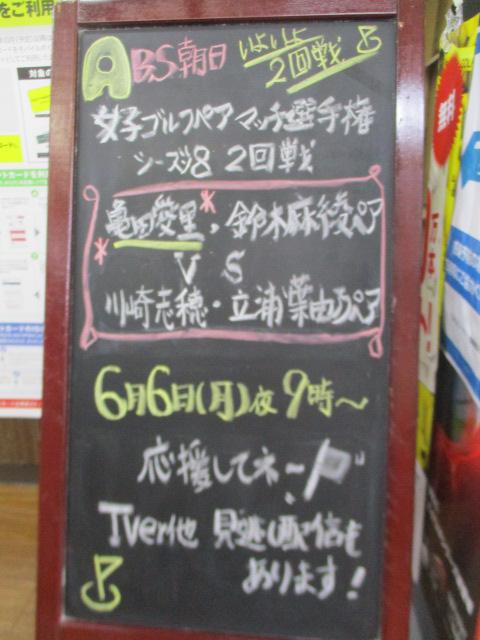 をご利用
ABS朝日 いよいよ
2回戦
女子ゴルフペアマッチ選手権
シーズン8 2回戦
亀田愛里、鈴木麻綾ペア
VS
川崎志穂・立浦葉由乃ペア
6月6日(月)夜9時〜
応援してネー
Tver他 見逃し配信も
あります!
無料